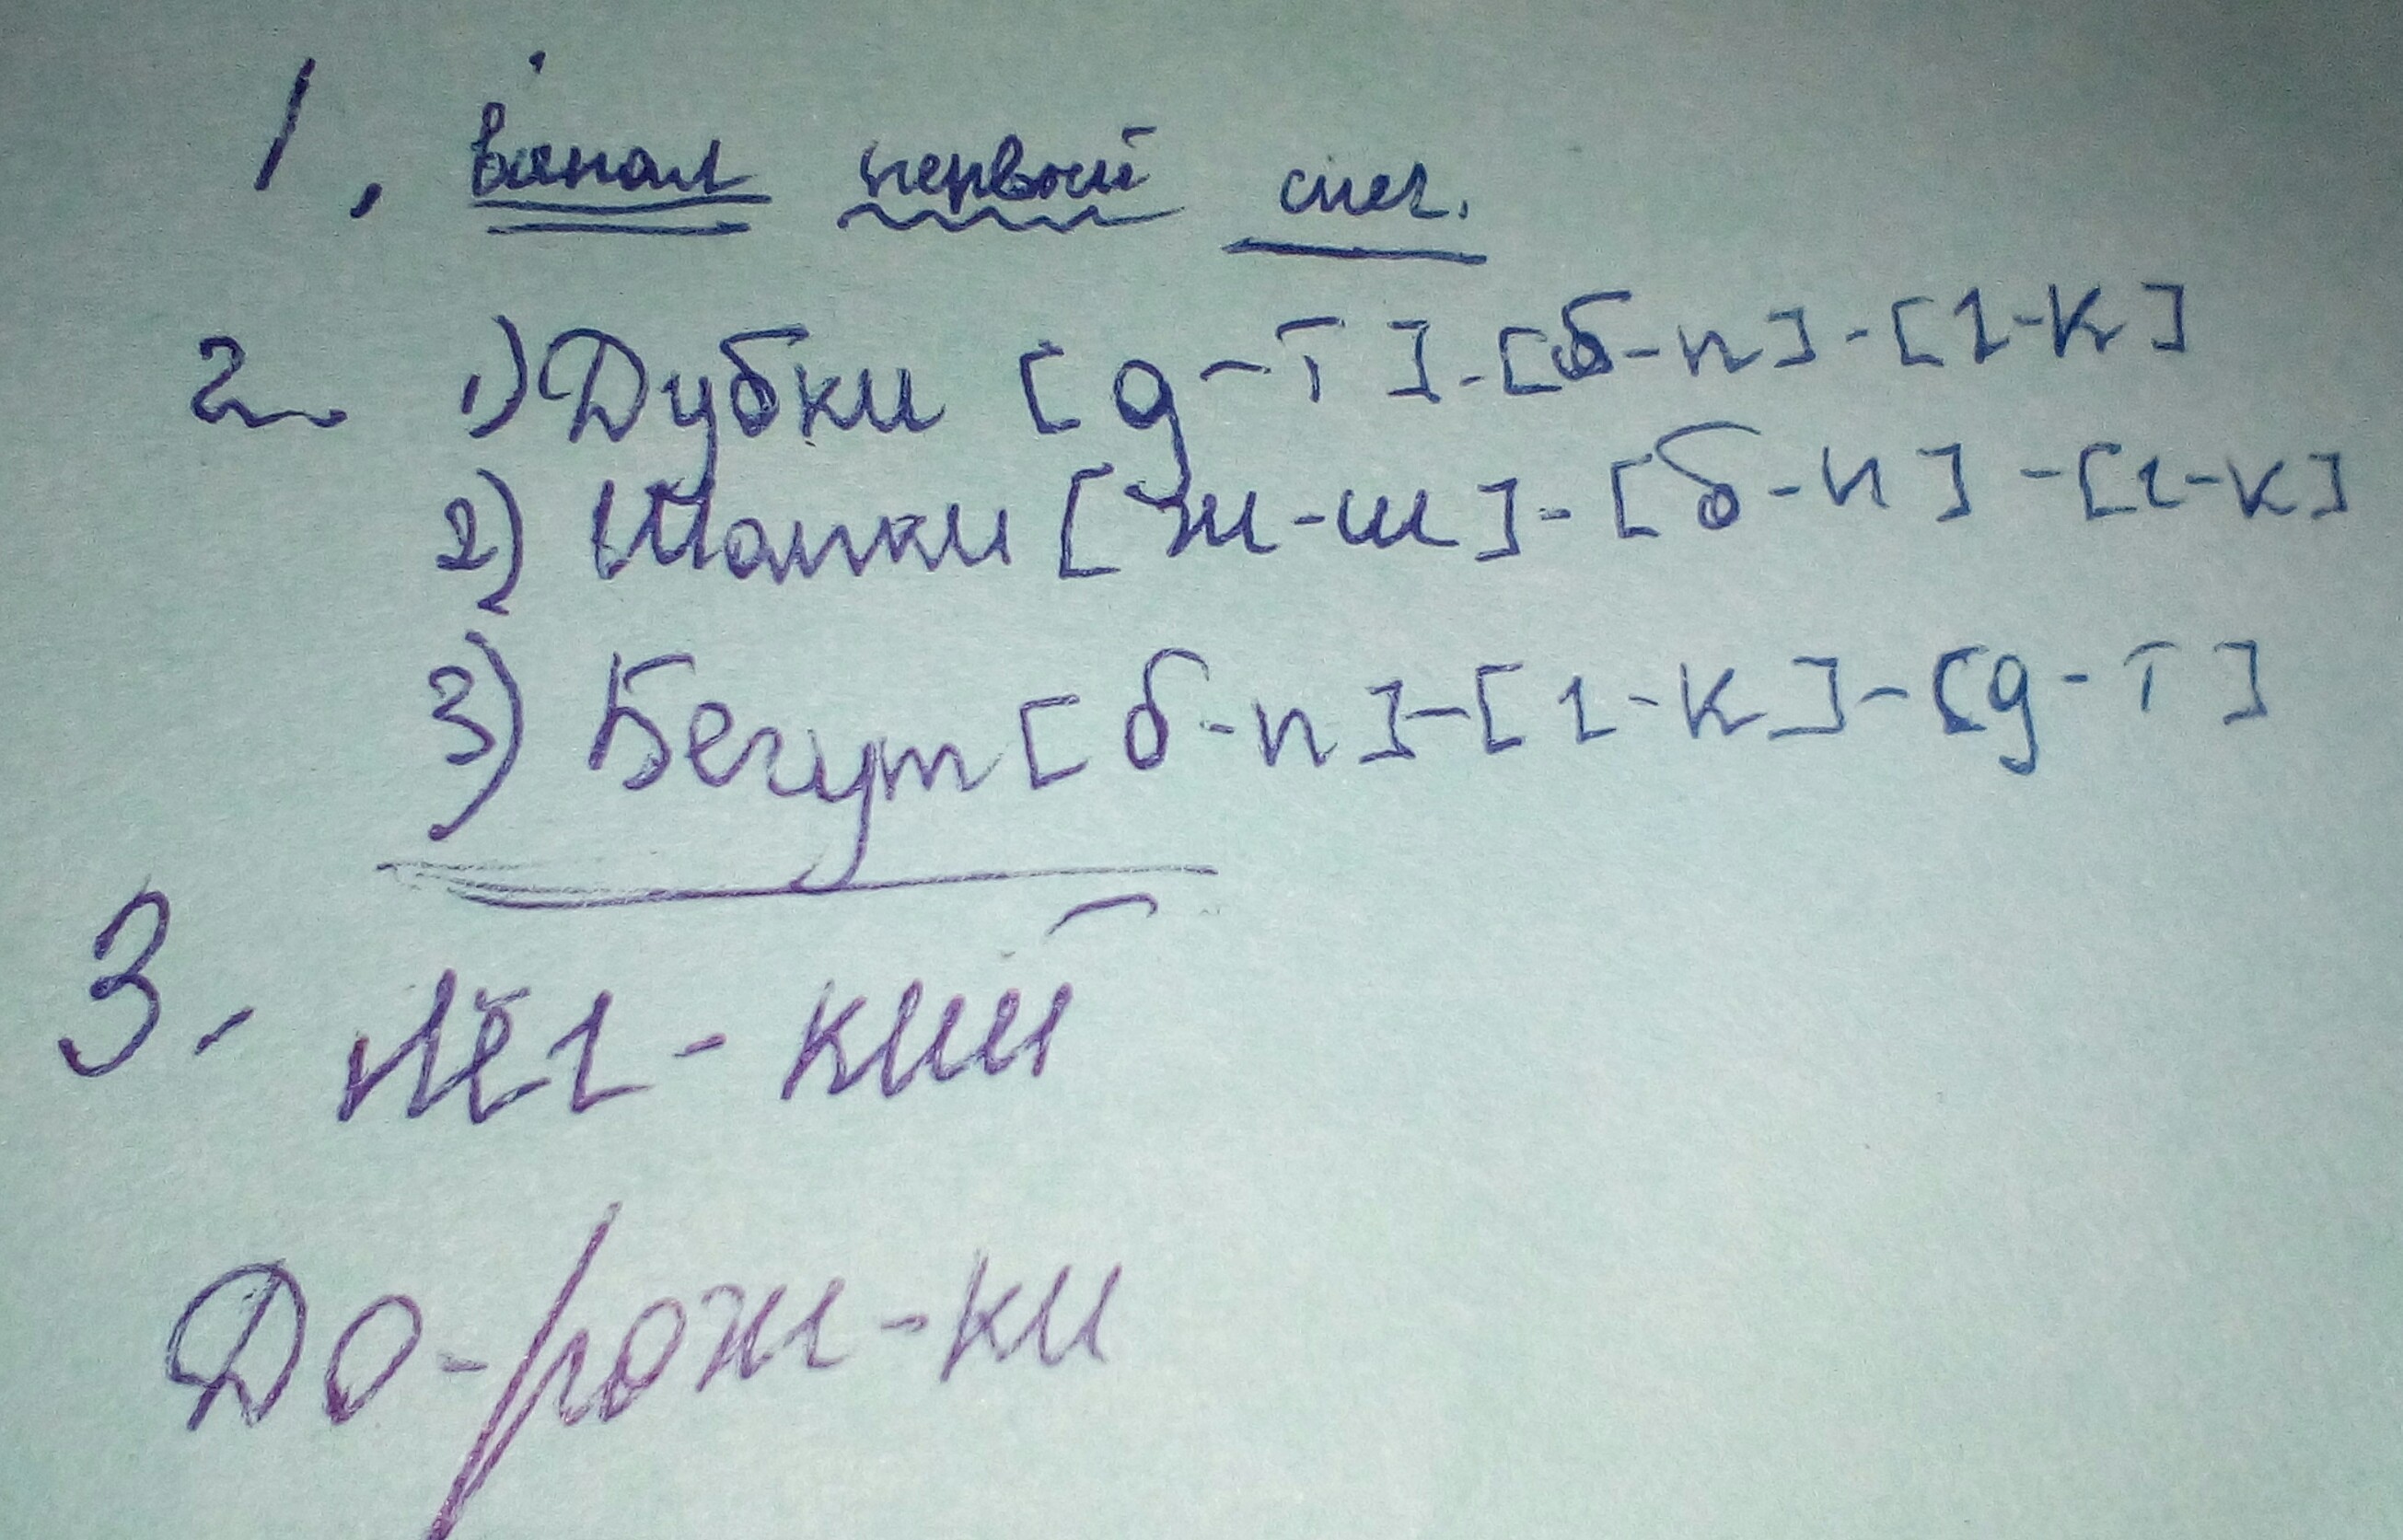 1. выпал первый снег.
2. 1) Дубки [д-т]-[б-п]-[г-к]
2) Шапки [ж-ш]-[б-п]-[г-к]
3) Бегут [б-п]-[г-к]-[д-т]
3. лёг-кий
До-рож-ки